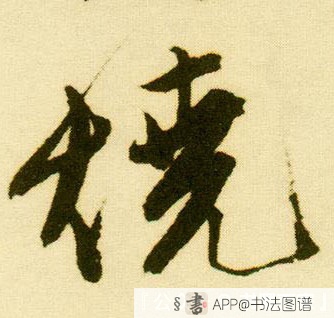 燒
書 APP@书法图谱